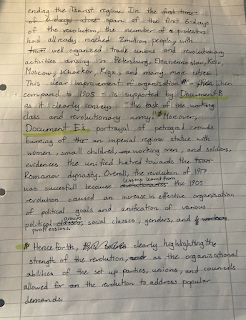 ending the Tsarist regime. In the first time
of 6 days span of the first 6 days
of the revolution, the number of protestors
had already reached              people with
their well organized trade unions and revolutionary
activities arising in Petersburg,
Moscow, Kharkov, Riga, and many more cities.
This clear improvement of organisation         when
compared to 1905 is supported by Document B
as it clearly conveys "the task of the working
class and revolutionary army". Moreover,
Document E's portrayal of petrograd crowds
burning of the an imperial regime statue with
women, small children, working men, and soldiers,
evidences the unified hatred towards the
Romanov dynasty. Overall, the revolution of 1917
was succesfull because                the 1905
revolution caused an increase in effective organisation
of political goals and unification of various
political          social classes, genders, and
professions.
Henceforth,              clearly highlighting the
strength of the revolution,       as the organisational
abilities of the set up parties, unions, and councils
allowed for       the revolution to address popular
demands.